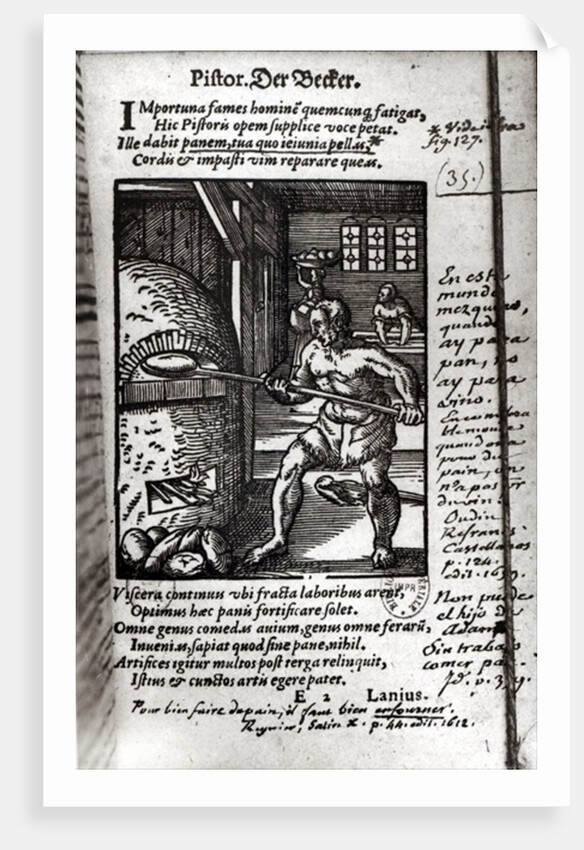 Piſtor. Der Becker.
IMportuna fames hominē quemcunq; fatigat,
Hic Piſtoris opem ſupplice voce petat.
Ille dabit panem, tua quo ieiunia pellas,*
Cordis & impaſti vim reparare queas.
* Vide
fig. 127.
(35.)
En este
mundo
mezquino,
quando
ay para
pan, no
ay para
vino.
quand on a
pour du
pain, on
n'a pas
du vin.
Oudin
Refranes
Castellanos
p. 124.
edit. 1659.
Non puede
el hijo de
Adam
Sin trabajo
comer pan.
Viſcera continuis vbi fracta laboribus arent,
Optimus hæc panis fortificare ſolet.
Omne genus comedas auium, genus omne ferarū,
Inuenias, ſapiat quod ſine pane, nihil.
Artifices igitur multos poſt terga relinquit,
Iſtius & cunctos artis egere patet.
E 2 Lanius.
Pour bien faire du pain, il faut bien enfourner.
Regnier, Satire X. p. 44. edit. 1612.